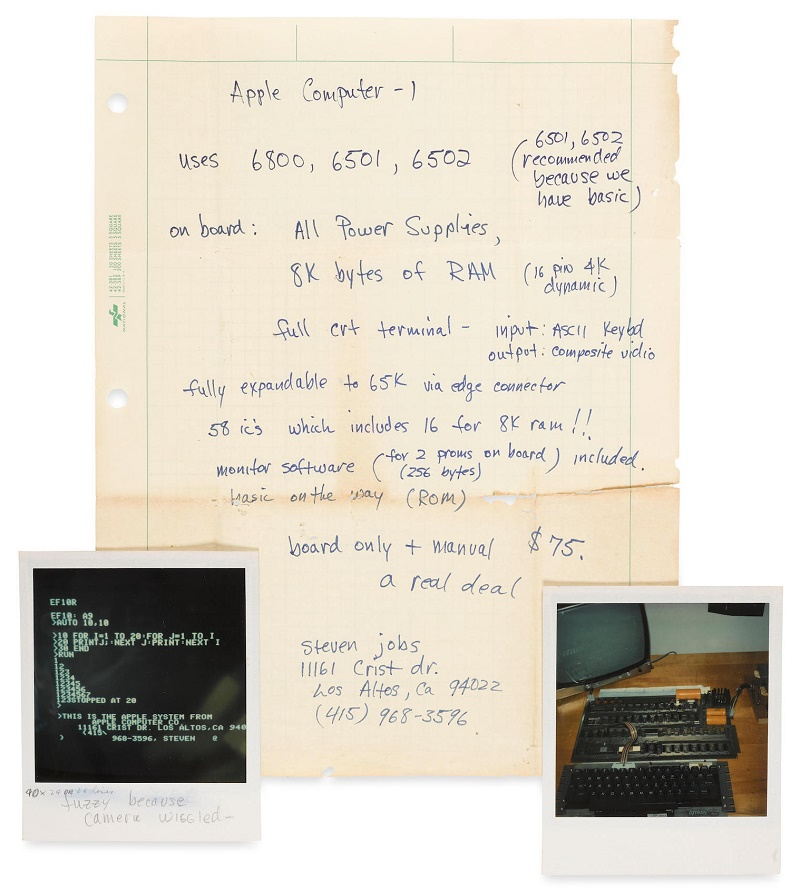 Apple Computer-1
uses 6800, 6501, 6502
(6501, 6502
recommended
because we
have basic)
on board: All Power Supplies,
8K bytes of RAM (16 pin 4K
dynamic)
full crt terminal - input: ASCII Keybd
output: composite vidio
fully expandable to 65K via edge connector
58 ic's which includes 16 for 8K ram!!
monitor software (for 2 proms on board) included.
(256 bytes)
- basic on the way (ROM)
board only + manual $75.
a real deal
steven jobs
11161 Crist dr.
Los Altos, Ca 94022
(415) 968-3596
EF10R
EF10: A9
>AUTO 10,10
>10 FOR I=1 TO 20:FOR J=1 TO I
>20 PRINTJ;:NEXT J:PRINT:NEXT I
>30 END
>RUN
1
12
123
1234
12345
123456
1234567
123STOPPED AT 20
>THIS IS THE APPLE SYSTEM FROM
APPLE COMPUTER CO.
11161 CRIST DR. LOS ALTOS,CA 940
(415\
) 968-3596, STEVEN @
fuzzy because
camera wiggled-